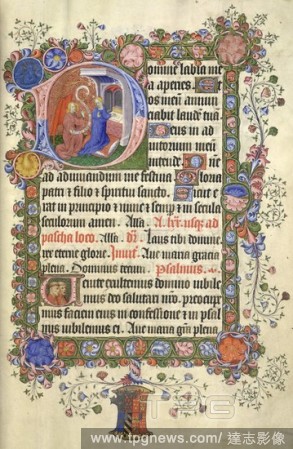 Domine labia
mea aperies. Et
os meum annun
ciabit laudē tuā
Deus in ad
iutorium meū
intende. Dn̄e
ad adiuuandum me festina Gloria
patri & filio & spiritui sancto. Sicut e
rat in principio & nunc & semp & in secula
seculorum amen. Alla. A. lxx. usq; ad
pascha loco. Alla. dr̄. Laus tibi domine
rex eterne glorie. Inuit. Aue maria gracia
plena. Dominus tecum. Psalmus.
Uenite exultemus domino iubile
mus deo salutari nr̄o. preocup
mus faciem eius in confessione & in psal
mis iubilemus ei. Aue maria grā plena
TPG
www.tpgnews.com / 達志影像